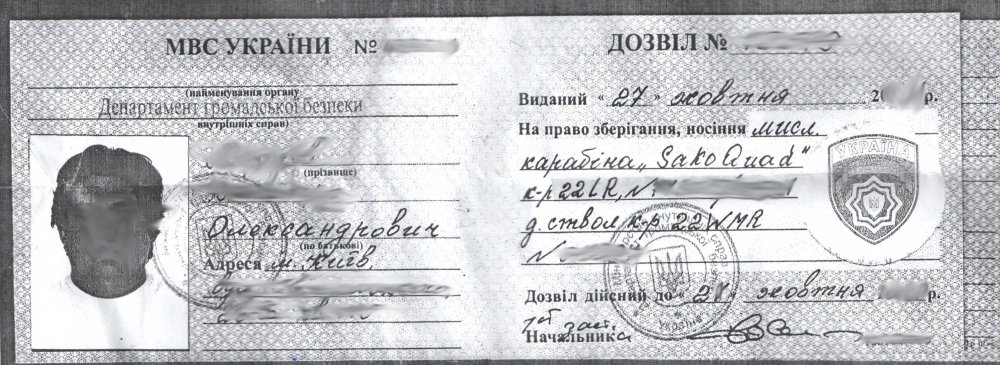 МВС УКРАЇНИ №
(найменування органу
Департамент громадської безпеки
внутрішніх справ)
(прізвище)
Олександрович
(по батькові)
Адреса м. Київ,
ДОЗВІЛ №
Виданий " 27 " жовтня 2 р.
На право зберігання, носіння мисл.
карабіна „Sako Quad"
к-р 22LR, N:
д. ствол, к-р 22WMR
N.
УКРАЇНА
Україна
Дозвіл дійсний до " 21 " жовтня р.
1й заст.
Начальника